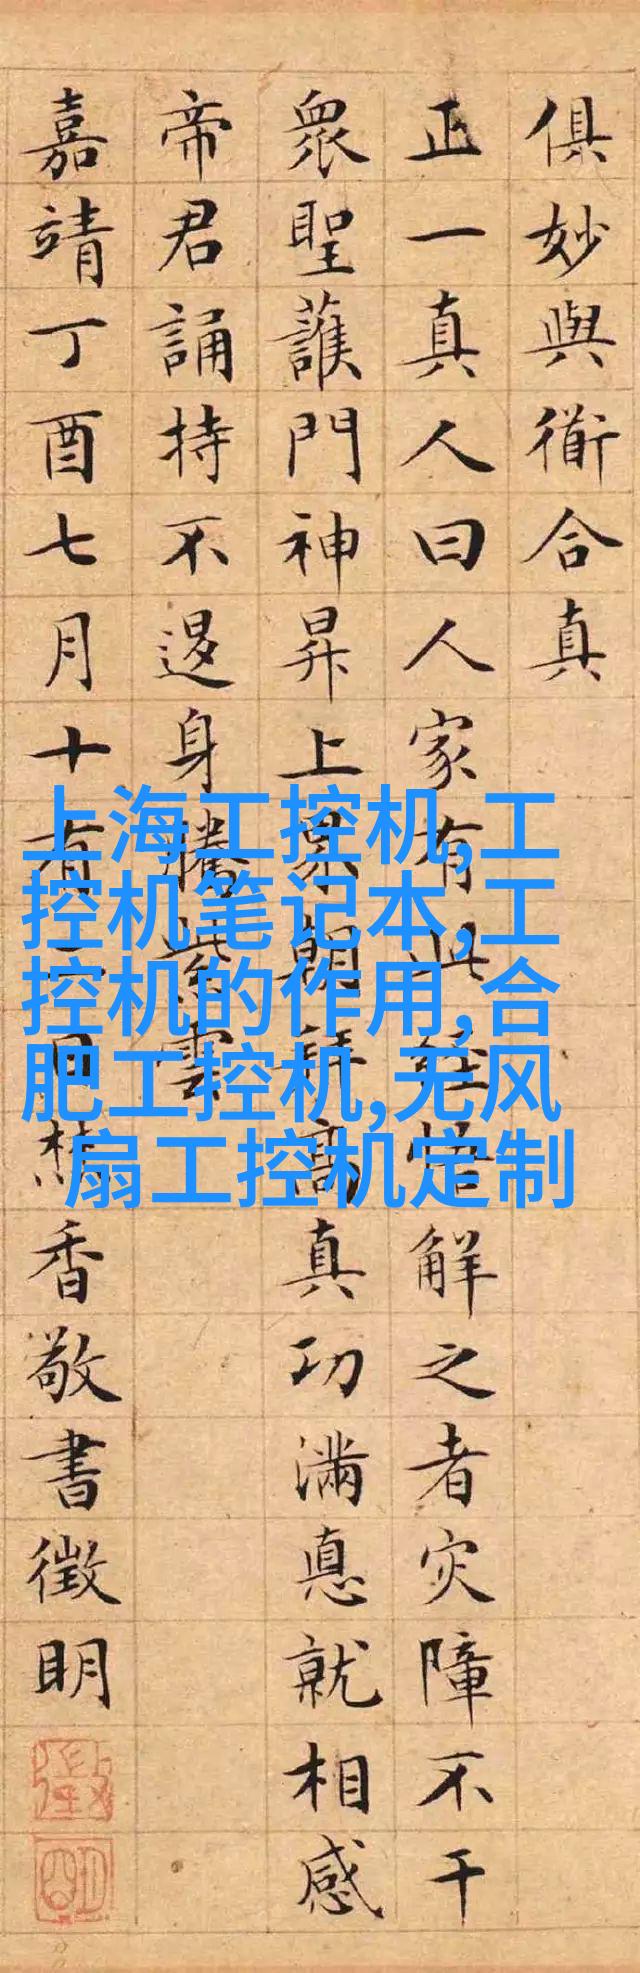 俱妙與衜合真
正一真人曰人家有此經悟解之者灾障不干
衆聖護門神昇上界朝拜高真功滿悳就相感
帝君誦持不退身騰紫雲
嘉靖丁酉七月十有日焚香敬書徵明
徵明
上海工控机,工
控机笔记本,工
控机的作用,合
肥工控机,无风
扇工控机定制